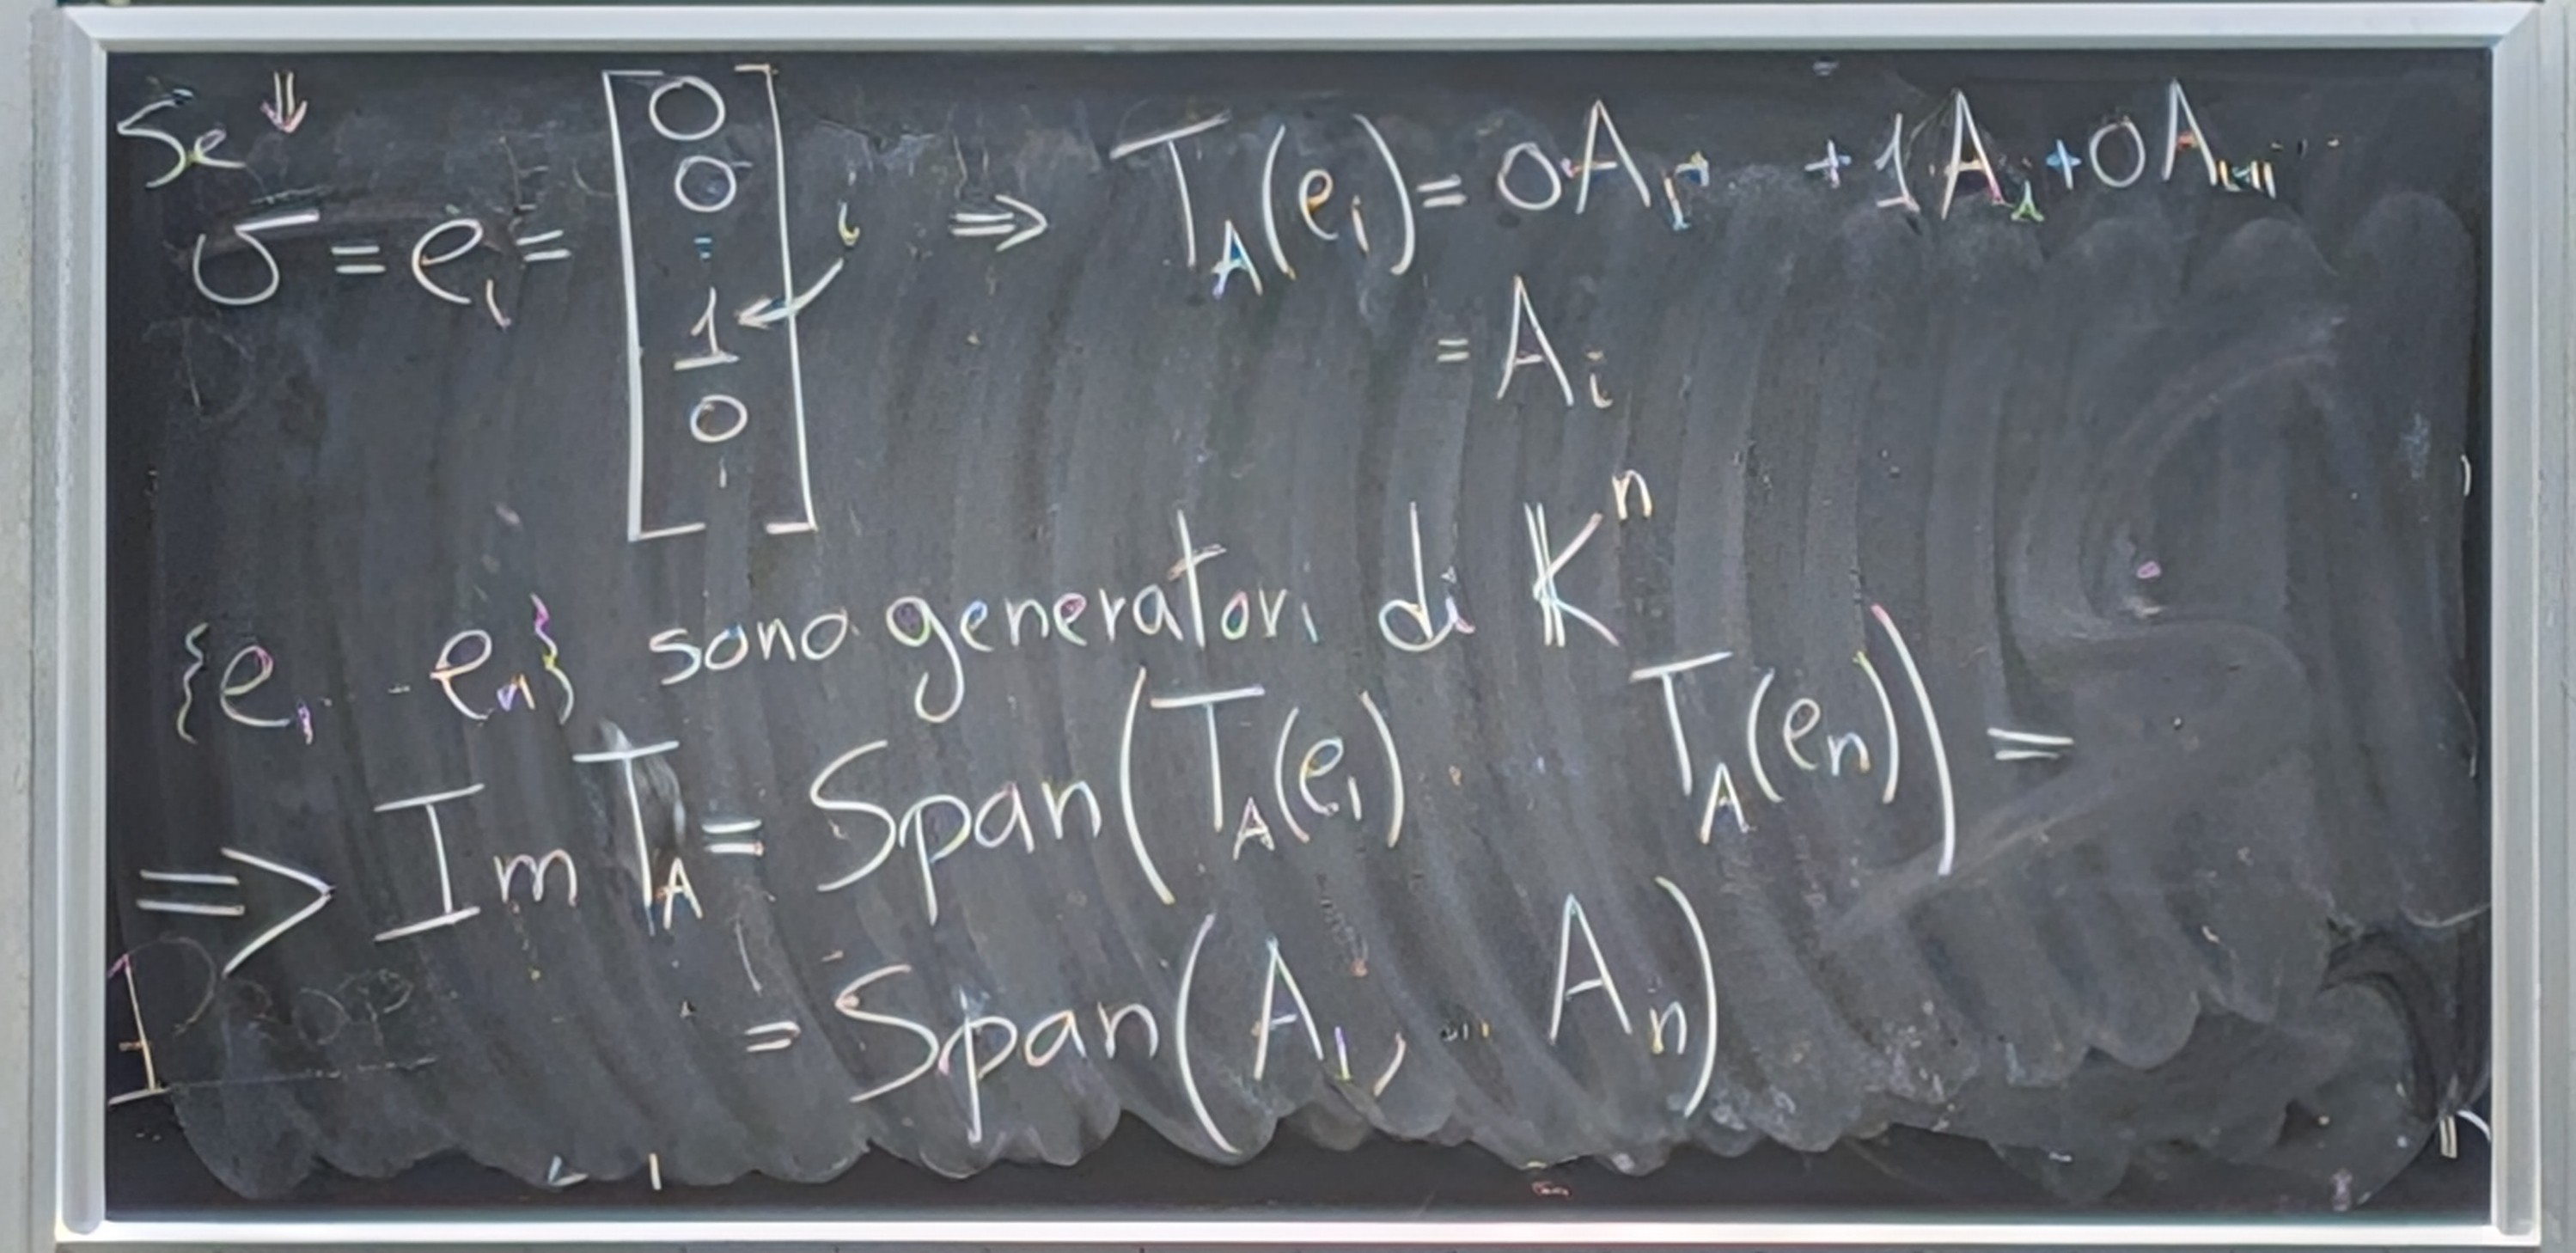 Se ⇓
v = e_i = [0 0 ⋮ 1 0 ⋮] ← i ⇒ T_A(e_i) = 0A_1 + ... + 1A_i + 0A_{i+1} ...
= A_i
{e_1 ... e_n} sono generatori di 𝕂^n
⇒ Im T_A = Span(T_A(e_1) ... T_A(e_n)) =
= Span(A_1, ... A_n)